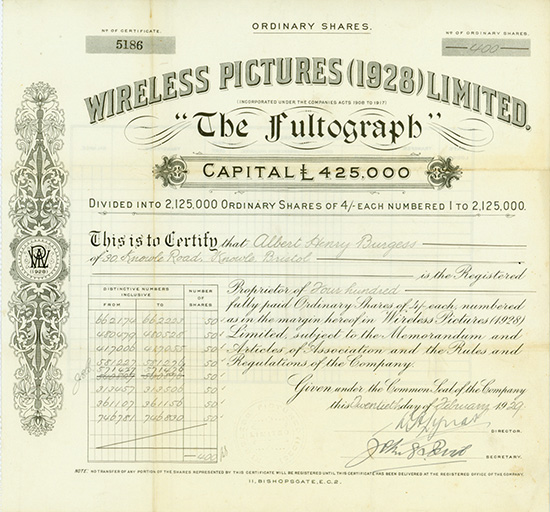 ORDINARY SHARES.
Nº OF CERTIFICATE.
5186
Nº OF ORDINARY SHARES.
400
WIRELESS PICTURES (1928) LIMITED.
(INCORPORATED UNDER THE COMPANIES ACTS 1908 TO 1917)
"The Fultograph"
CAPITAL £425,000
DIVIDED INTO 2,125,000 ORDINARY SHARES OF 4/- EACH NUMBERED 1 TO 2,125,000.
This is to Certify that Albert Henry Burgess
of 30 Knowle Road, Knowle, Bristol
is the Registered
Proprietor of Four hundred
fully paid Ordinary Shares of 4/- each, numbered
as in the margin hereof in Wireless Pictures (1928)
Limited, subject to the Memorandum and
Articles of Association and the Rules and
Regulations of the Company.
Given under the Common Seal of the Company
this Twentieth day of February 1929
DIRECTOR.
SECRETARY.
DISTINCTIVE NUMBERS INCLUSIVE
NUMBER OF SHARES
FROM TO
662174 662223 50
480479 480528 50
417006 417055 50
50
50
313457 313506 50
361107 361156 50
746781 746830 50
400
(1928)
NOTE: NO TRANSFER OF ANY PORTION OF THE SHARES REPRESENTED BY THIS CERTIFICATE WILL BE REGISTERED UNTIL THIS CERTIFICATE HAS BEEN DELIVERED AT THE REGISTERED OFFICE OF THE COMPANY.
11, BISHOPSGATE, E.C.2.